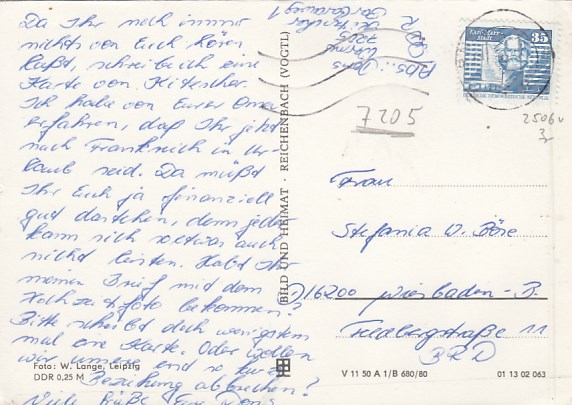 Da Ihr noch immer
nichts von Euch hören
laßt, schreibe ich eine
Karte von
Ich habe von Eurer Oma
erfahren, daß Ihr jetzt
nach Frankreich in Ur-
laub seid. Da müßt
Ihr Euch ja finanziell
gut dastehen, denn jeder
kann sich so etwas auch
nicht leisten. Habt Ihr
meinen Brief mit dem
Hochzeitsfoto bekommen?
Bitte schreibt doch wenigstens
mal eine Karte. Oder wollen
wir unsere
Beziehung abbrechen?
Viele Grüße Eure
Foto: W. Lange, Leipzig
DDR 0,25 M
BILD UND HEIMAT · REICHENBACH (VOGTL)
Abs.:
35
7205
2506
Frau
Stefania W. Böse
6200 Wiesbaden-B.
Feldbergstraße 11
BRD
V 11 50 A 1/B 680/80
01 13 02 063